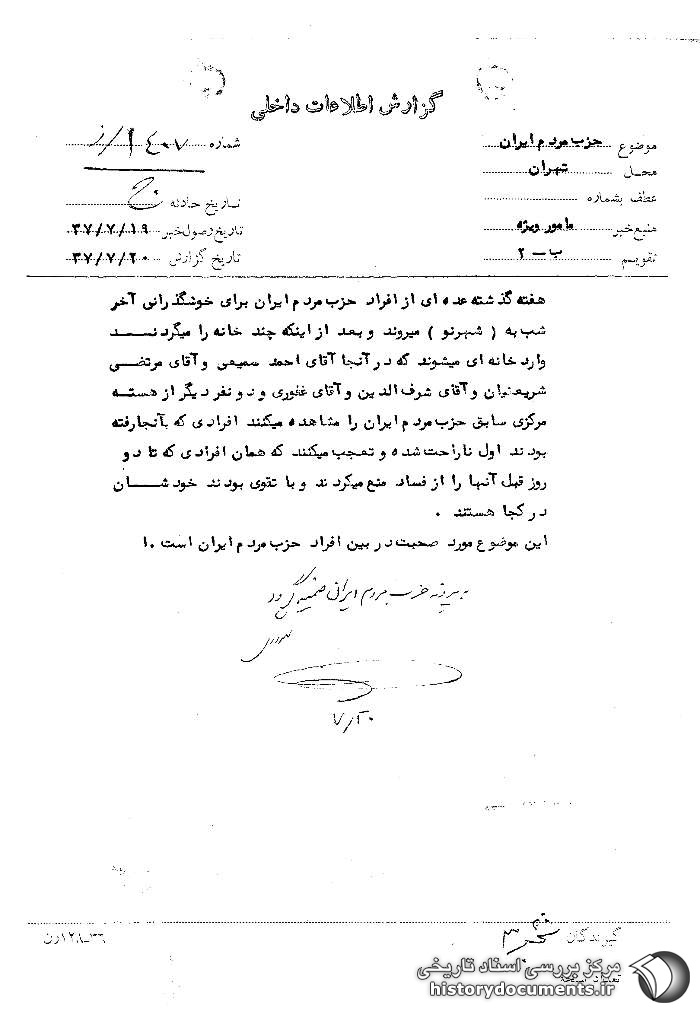 گزارش اطلاعات داخلی
موضوع حزب مردم ایران
شماره
محل تهران
عطف بشماره
تاریخ حادثه
منبع خبر مامور ویژه
تاریخ وصول خبر ۳۷/۷/۱۹
تقویم ب-۲
تاریخ گزارش ۳۷/۷/۲۰
هفته گذشته عده ای از افراد حزب مردم ایران برای خوشگذرانی آخر
شب به ( شهرنو ) میروند و بعد از اینکه چند خانه را میگردنــد
وارد خانه ای میشوند که در آنجا آقای احمد سمیعی و آقای مرتضــی
شریعتیان و آقای شرف الدین و آقای غفوری و دو نفر دیگر از هسته
مرکزی سابق حزب مردم ایران را مشاهده میکنند افرادی که بآنجارفته
بودند اول ناراحت شده و تعجب میکنند که همان افرادی که تا دو
روز قبل آنها را از فساد منع میکردند و با تقوی بودند خودشــان
در کجا هستند .
این موضوع مورد صحبت در بین افراد حزب مردم ایران است .ا
پرونده حزب مردم ایران ضمیمه گردد
۷/۲۰
گیرندگان
مرکز بررسی اسناد تاریخی
historydocuments.ir